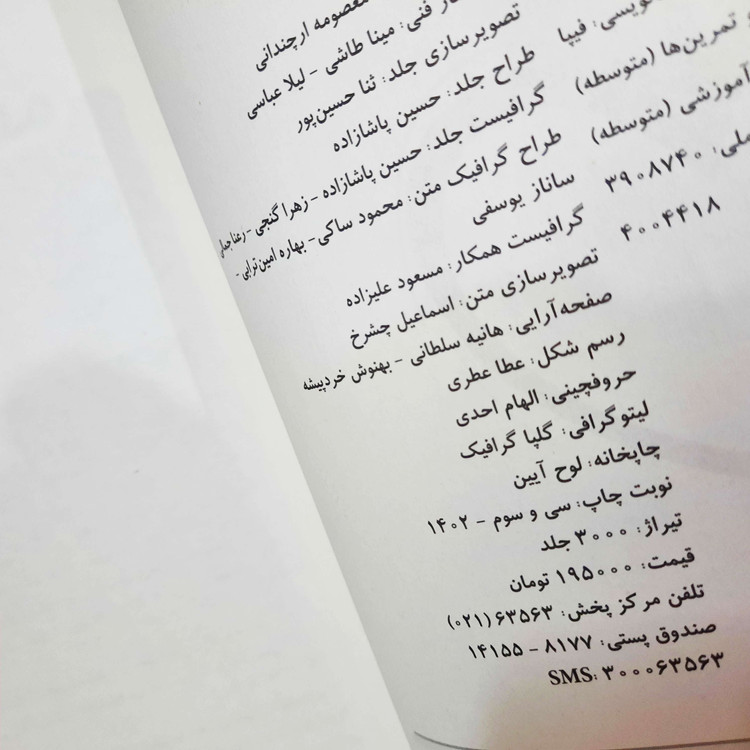 معصومه ارچندانی
فنی: مینا طاشی - لیلا عباسی
تصویرسازی جلد: ثنا حسین‌پور
طراح جلد: حسین پاشازاده
گرافیست جلد: حسین پاشازاده - زهرا گنجی -
طراح گرافیک متن: محمود ساکی - بهاره امین‌ترابی -
ساناز یوسفی
گرافیست همکار: مسعود علیزاده
تصویرسازی متن: اسماعیل چشرخ
صفحه‌آرایی: هانیه سلطانی - بهنوش خردپیشه
رسم شکل: عطا عطری
حروفچینی: الهام احدی
لیتوگرافی: گلپا گرافیک
چاپخانه: لوح آیین
نوبت چاپ: سی و سوم - ۱۴۰۲
تیراژ: ۳۰۰۰ جلد
قیمت: ۱۹۵۰۰۰ تومان
تلفن مرکز پخش: ۶۳۵۶۳ (۰۲۱)
صندوق پستی: ۸۱۷۷ - ۱۴۱۵۵
SMS: ۳۰۰۰۶۳۵۶۳
فیپا
تمرین‌ها (متوسطه)
آموزشی (متوسطه)
۳۹۰۸۷۴۰
۴۰۰۴۴۱۸